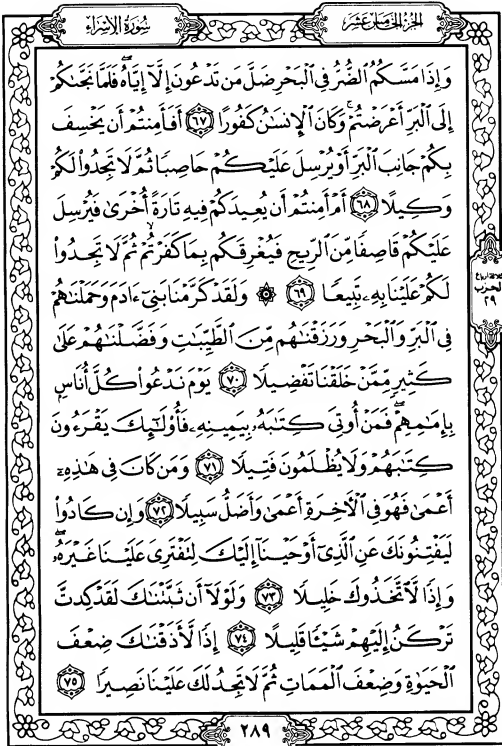 سُورَةُ الإِسْرَاء
الجُزْءُ الخَامِسَ عَشَرَ
وَإِذَا مَسَّكُمُ ٱلضُّرُّ فِي ٱلْبَحْرِ ضَلَّ مَن تَدْعُونَ إِلَّآ إِيَّاهُۖ فَلَمَّا نَجَّىٰكُمْ
إِلَى ٱلْبَرِّ أَعْرَضْتُمْۚ وَكَانَ ٱلْإِنسَٰنُ كَفُورًا ٦٧ أَفَأَمِنتُمْ أَن يَخْسِفَ
بِكُمْ جَانِبَ ٱلْبَرِّ أَوْ يُرْسِلَ عَلَيْكُمْ حَاصِبًا ثُمَّ لَا تَجِدُوا۟ لَكُمْ
وَكِيلًا ٦٨ أَمْ أَمِنتُمْ أَن يُعِيدَكُمْ فِيهِ تَارَةً أُخْرَىٰ فَيُرْسِلَ
عَلَيْكُمْ قَاصِفًا مِّنَ ٱلرِّيحِ فَيُغْرِقَكُم بِمَا كَفَرْتُمْۙ ثُمَّ لَا تَجِدُوا۟
لَكُمْ عَلَيْنَا بِهِۦ تَبِيعًا ٦٩ ۞ وَلَقَدْ كَرَّمْنَا بَنِىٓ ءَادَمَ وَحَمَلْنَٰهُمْ
فِي ٱلْبَرِّ وَٱلْبَحْرِ وَرَزَقْنَٰهُم مِّنَ ٱلطَّيِّبَٰتِ وَفَضَّلْنَٰهُمْ عَلَىٰ
كَثِيرٍ مِّمَّنْ خَلَقْنَا تَفْضِيلًا ٧٠ يَوْمَ نَدْعُوا۟ كُلَّ أُنَاسٍۭ
بِإِمَٰمِهِمْۖ فَمَنْ أُوتِيَ كِتَٰبَهُۥ بِيَمِينِهِۦ فَأُو۟لَٰٓئِكَ يَقْرَءُونَ
كِتَٰبَهُمْ وَلَا يُظْلَمُونَ فَتِيلًا ٧١ وَمَن كَانَ فِي هَٰذِهِۦٓ
أَعْمَىٰ فَهُوَ فِي ٱلْءَاخِرَةِ أَعْمَىٰ وَأَضَلُّ سَبِيلًا ٧٢ وَإِن كَادُوا۟
لَيَفْتِنُونَكَ عَنِ ٱلَّذِىٓ أَوْحَيْنَآ إِلَيْكَ لِتَفْتَرِىَ عَلَيْنَا غَيْرَهُۥۖ
وَإِذًا لَّٱتَّخَذُوكَ خَلِيلًا ٧٣ وَلَوْلَآ أَن ثَبَّتْنَٰكَ لَقَدْ كِدتَّ
تَرْكَنُ إِلَيْهِمْ شَيْـًٔا قَلِيلًا ٧٤ إِذًا لَّأَذَقْنَٰكَ ضِعْفَ
ٱلْحَيَوٰةِ وَضِعْفَ ٱلْمَمَاتِ ثُمَّ لَا تَجِدُ لَكَ عَلَيْنَا نَصِيرًا ٧٥
الحزب
٢٩
٢٨٩